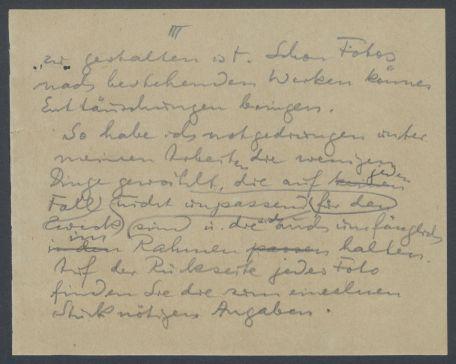 III
"zu" gestalten ist. Schon Fotos
nach bestehenden Werken können
Enttäuschungen bringen.
So habe ich notgedrungen unter
meinen Arbeiten die wenigen
Dinge gewählt, die auf keinen jeden
Fall nicht unpassend für den
Zweck sind u. die sich auch umfänglich
in den im Rahmen passen halten.
Auf der Rückseite jeder Foto
finden Sie die zum einzelnen
Stück nötigen Angaben.